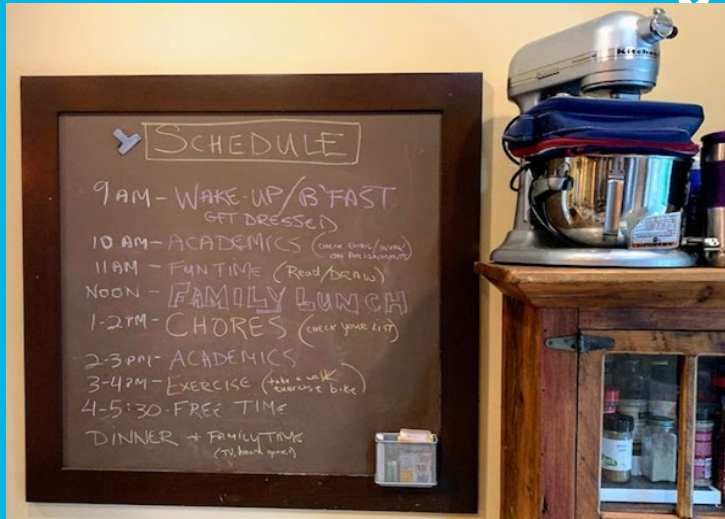 SCHEDULE
9 AM - WAKE-UP/B'FAST
GET DRESSED
10 AM - ACADEMICS (CHECK EMAIL/WORK
ON ASSIGNMENTS)
11 AM - FUN TIME (Read/DRAW)
NOON - FAMILY LUNCH
1-2PM - CHORES (CHECK YOUR LIST)
2-3 PM - ACADEMICS
3-4PM - EXERCISE (take a walk
exercise bike)
4-5:30 - FREE TIME
DINNER + FAMILY TIME
(TV, board games)
Kitchen